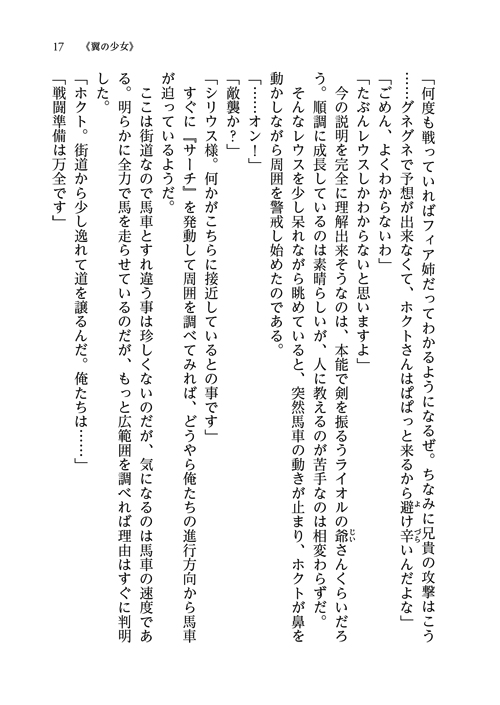 17　《翼の少女》
「何度も戦っていればフィア姉だってわかるようになるぜ。ちなみに兄貴の攻撃はこう
……グネグネで予想が出来なくて、ホクトさんはぱぱっと来るから避け辛いんだよな」
「ごめん、よくわからないわ」
「たぶんレウスしかわからないと思いますよ」
　今の説明を完全に理解出来そうなのは、本能で剣を振るうライオルの爺さんくらいだろ
う。順調に成長しているのは素晴らしいが、人に教えるのが苦手なのは相変わらずだ。
　そんなレウスを少し呆れながら眺めていると、突然馬車の動きが止まり、ホクトが鼻を
動かしながら周囲を警戒し始めたのである。
「……オン！」
「敵襲か？」
「シリウス様。何かがこちらに接近しているとの事です」
　すぐに『サーチ』を発動して周囲を調べてみれば、どうやら俺たちの進行方向から馬車
が迫っているようだ。
　ここは街道なので馬車とすれ違う事は珍しくないのだが、気になるのは馬車の速度であ
る。明らかに全力で馬を走らせているのだが、もっと広範囲を調べれば理由はすぐに判明
した。
「ホクト。街道から少し逸れて道を譲るんだ。俺たちは……」
「戦闘準備は万全です」